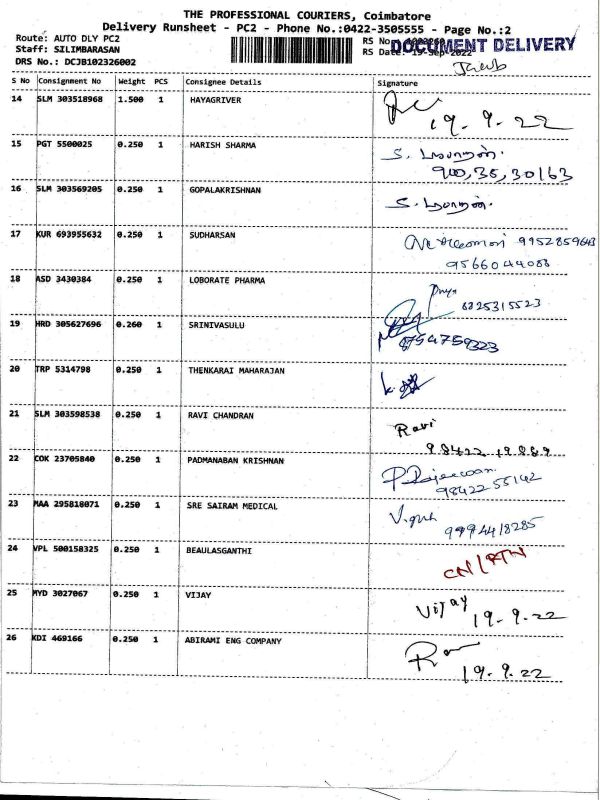 THE PROFESSIONAL COURIERS, Coimbatore
Delivery Runsheet - PC2 - Phone No.:0422-3505555 - Page No.:2
Route: AUTO DLY PC2
RS No
DOCUMENT DELIVERY
Staff: SILIMBARASAN
RS Date: 19-Sep-2022
DRS No.: DCJB102326002
S No Consignment No Weight PCS Consignee Details Signature
14 SLM 303518968 1.500 1 HAYAGRIVER
19.9.22
15 PGT 5500025 0.250 1 HARISH SHARMA
16 SLM 303569205 0.250 1 GOPALAKRISHNAN
17 KUR 693955632 0.250 1 SUDHARSAN
9566044088
18 ASD 3430384 0.250 1 LOBORATE PHARMA
Priya
8825315523
19 HRD 305627696 0.260 1 SRINIVASULU
8754759323
20 TRP 5314798 0.250 1 THENKARAI MAHARAJAN
21 SLM 303598538 0.250 1 RAVI CHANDRAN
Ravi
98422 19869
22 COK 23705840 0.250 1 PADMANABAN KRISHNAN
98422-55142
23 MAA 295818071 0.250 1 SRE SAIRAM MEDICAL
9994418285
24 VPL 500158325 0.250 1 BEAULASGANTHI
CN/RTN
25 MYD 3027067 0.250 1 VIJAY
Vijay 19.9.22
26 KDI 469166 0.250 1 ABIRAMI ENG COMPANY
19.9.22